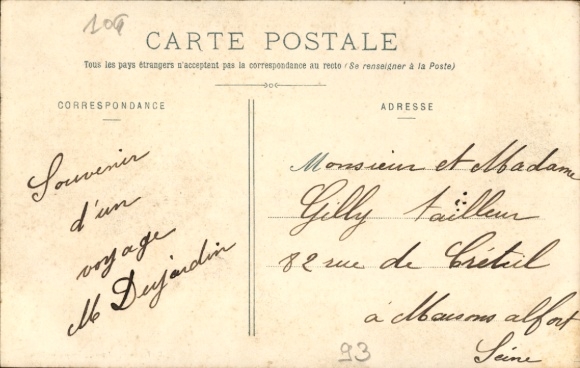 CARTE POSTALE
Tous les pays étrangers n'acceptent pas la correspondance au recto (Se renseigner à la Poste)
CORRESPONDANCE
Souvenir
d'un
voyage
M Desjardin
ADRESSE
Monsieur et Madame
Gilly tailleur
82 rue de Créteil
à Maisons alfort
Seine
93